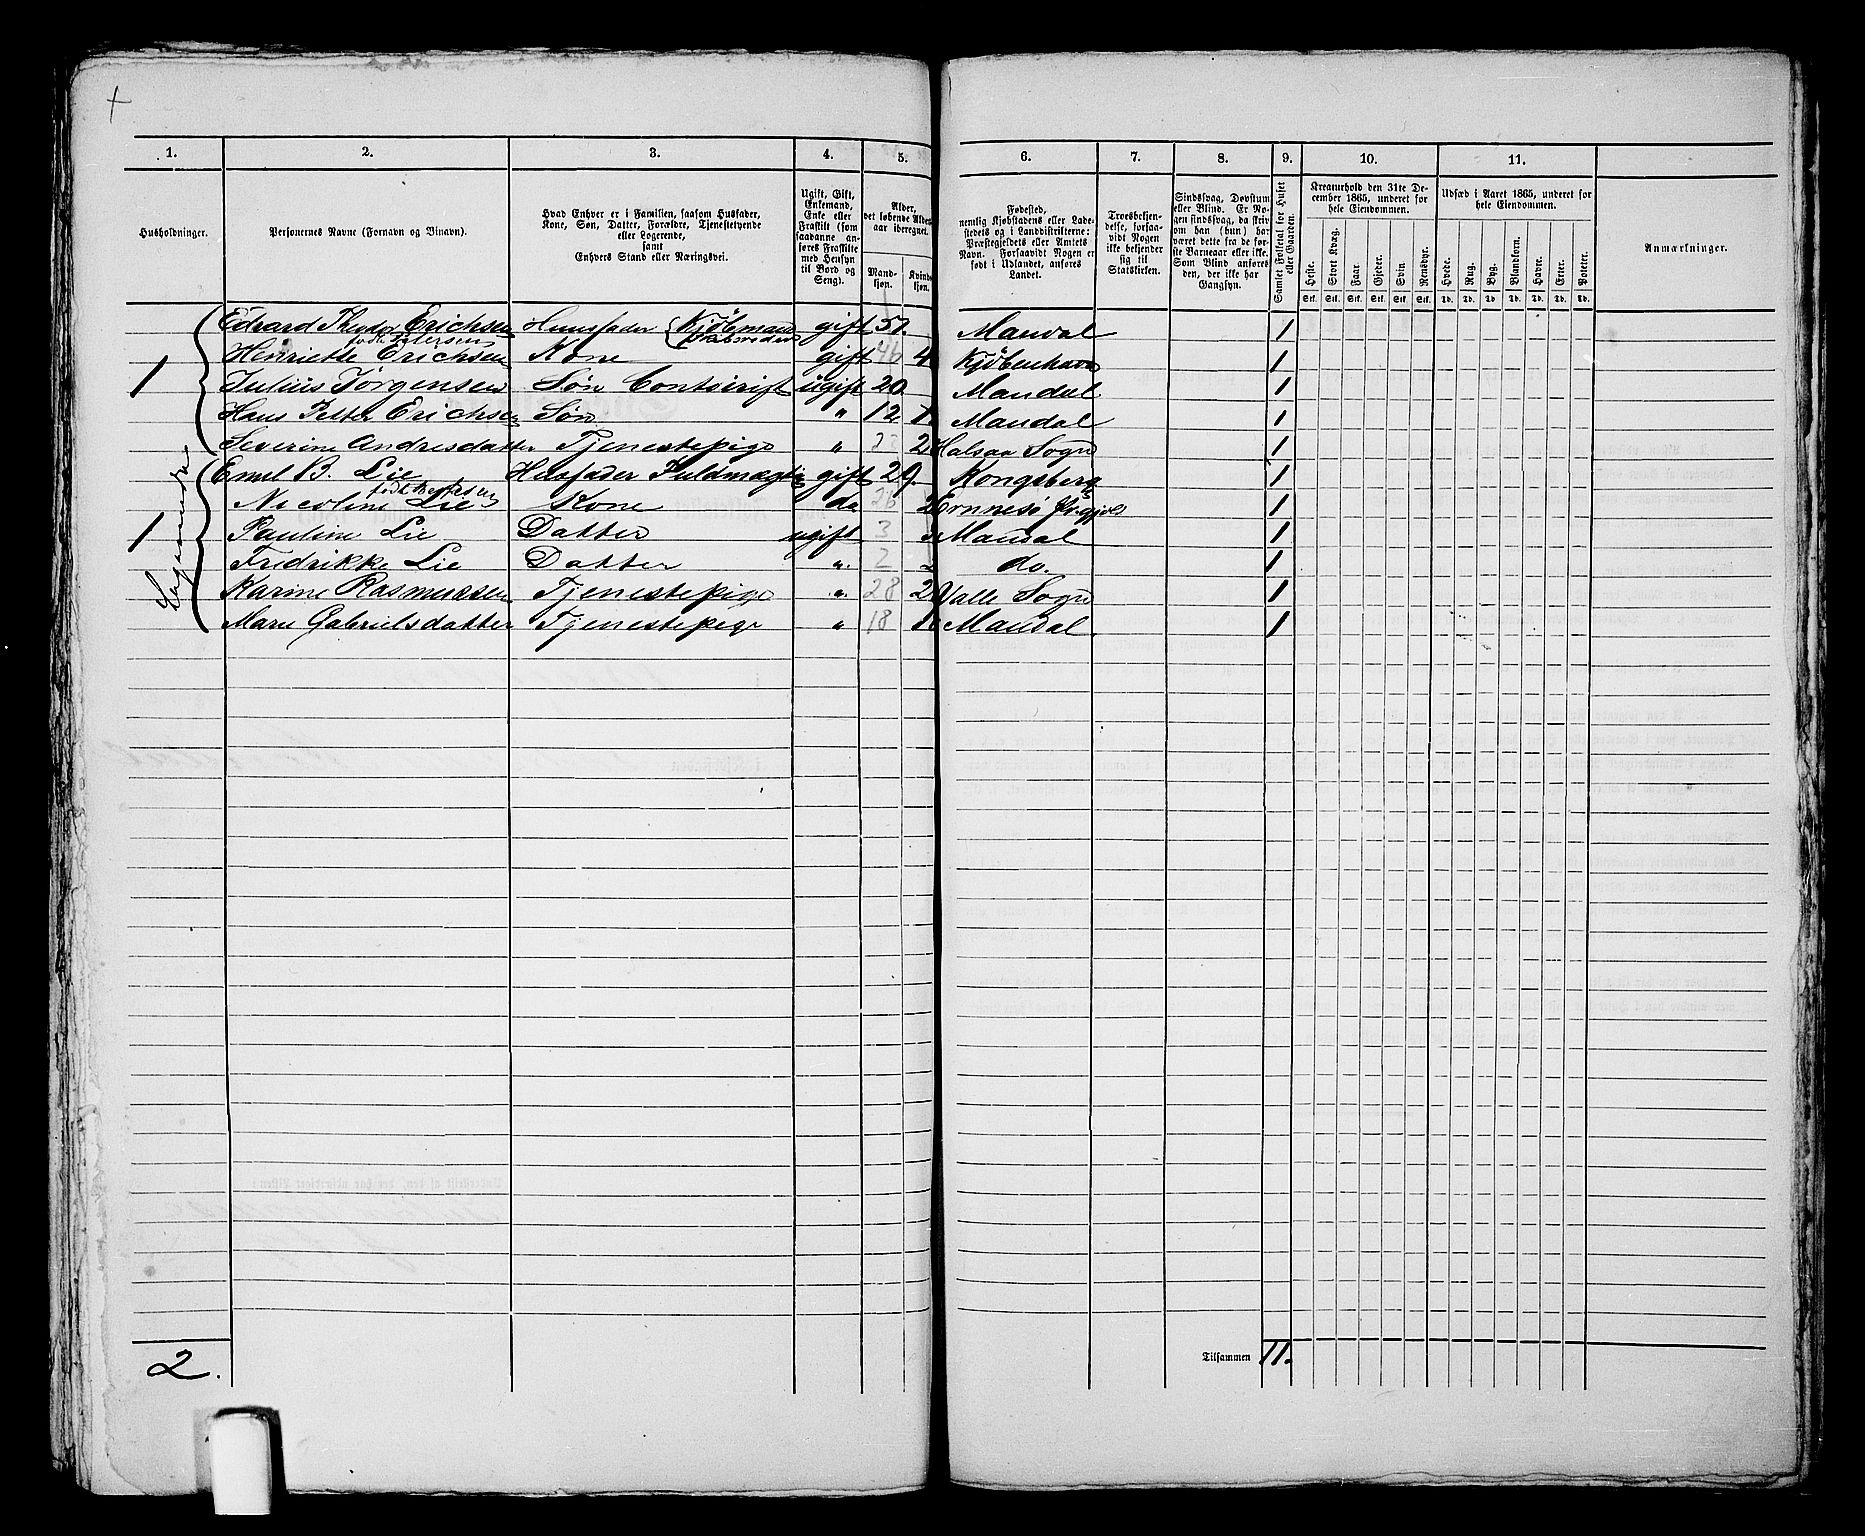 1. 2. 3. 4. 5. 6. 7. 8. 9. 10. 11.
Husholdninger.
Personernes Navne (Fornavn og Binavn).
Hvad Enhver er i Familien, saasom Husfader,
Kone, Søn, Datter, Forældre, Tjenestetyende
eller Logerende,
samt
Enhvers Stand eller Næringsvei.
Ugift, Gift,
Enkemand,
Enke eller
Fraskilt (som
saadanne an-
føres Fraskilte
med Hensyn
til Bord og
Seng).
Alder,
det løbende Alders-
aar iberegnet.
Mand-
kjøn.
Kvinde-
kjøn.
Fødested,
nemlig Kjøbstadens eller Lade-
stedets og i Landdistrikterne:
Præstegjeldets eller Amtets
Navn. Forsaavidt Nogen er
født i Udlandet, anføres
Landet.
Troesbekjen-
delse, forsaa-
vidt Nogen
ikke bekjender
sig til
Statskirken.
Sindssvag, Døvstum
eller Blind. Er No-
gen sindssvag, da skriv
om han (hun) har
været dette fra de før-
ste Barneaar eller ikke.
Som Blind anføres
den, der ikke har
Gangsyn.
Samlet Folketal for Huset
eller Gaarden.
Kreaturhold den 31te De-
cember 1865, underet for
hele Eiendommen.
Heste. Stort Kvæg. Faar. Gjeder. Svin. Rensdyr.
Stk. Stk. Stk. Stk. Stk. Stk.
Udsæd i Aaret 1865, underet for
hele Eiendommen.
Hvede. Rug. Byg. Blandkorn. Havre. Erter. Poteter.
Td. Td. Td. Td. Td. Td. Td.
Anmærkninger.
Edvard Theodor Erichsen Huusfader Kjöbmand gift 51. Mandal 1
født Petersen
Henriette Erichsen Kone gift 46 4 Kjöbenhavn 1
1 Julius Jørgensen Søn Contoirist ugift 20. Mandal 1
Hans Petter Erichsen Søn " 12 Mandal 1
Severine Andresdatter Tjenestepige " 2 Halsaa Sogn 1
Logerende
Emil B. Lie Husfader Fuldmægtig gift 29. Kongsberg 1
Nicoline Lie Kone do 26 2 1
1 Pauline Lie Datter ugift 3 Mandal 1
Fredrikke Lie Datter ". 2 2 do. 1
Karine Rasmussen Tjenestepige ". 28 2 Valle Sogn 1
Marie Gabrielsdatter Tjenestepige " 18 Mandal. 1
2.
Tilsammen 11.